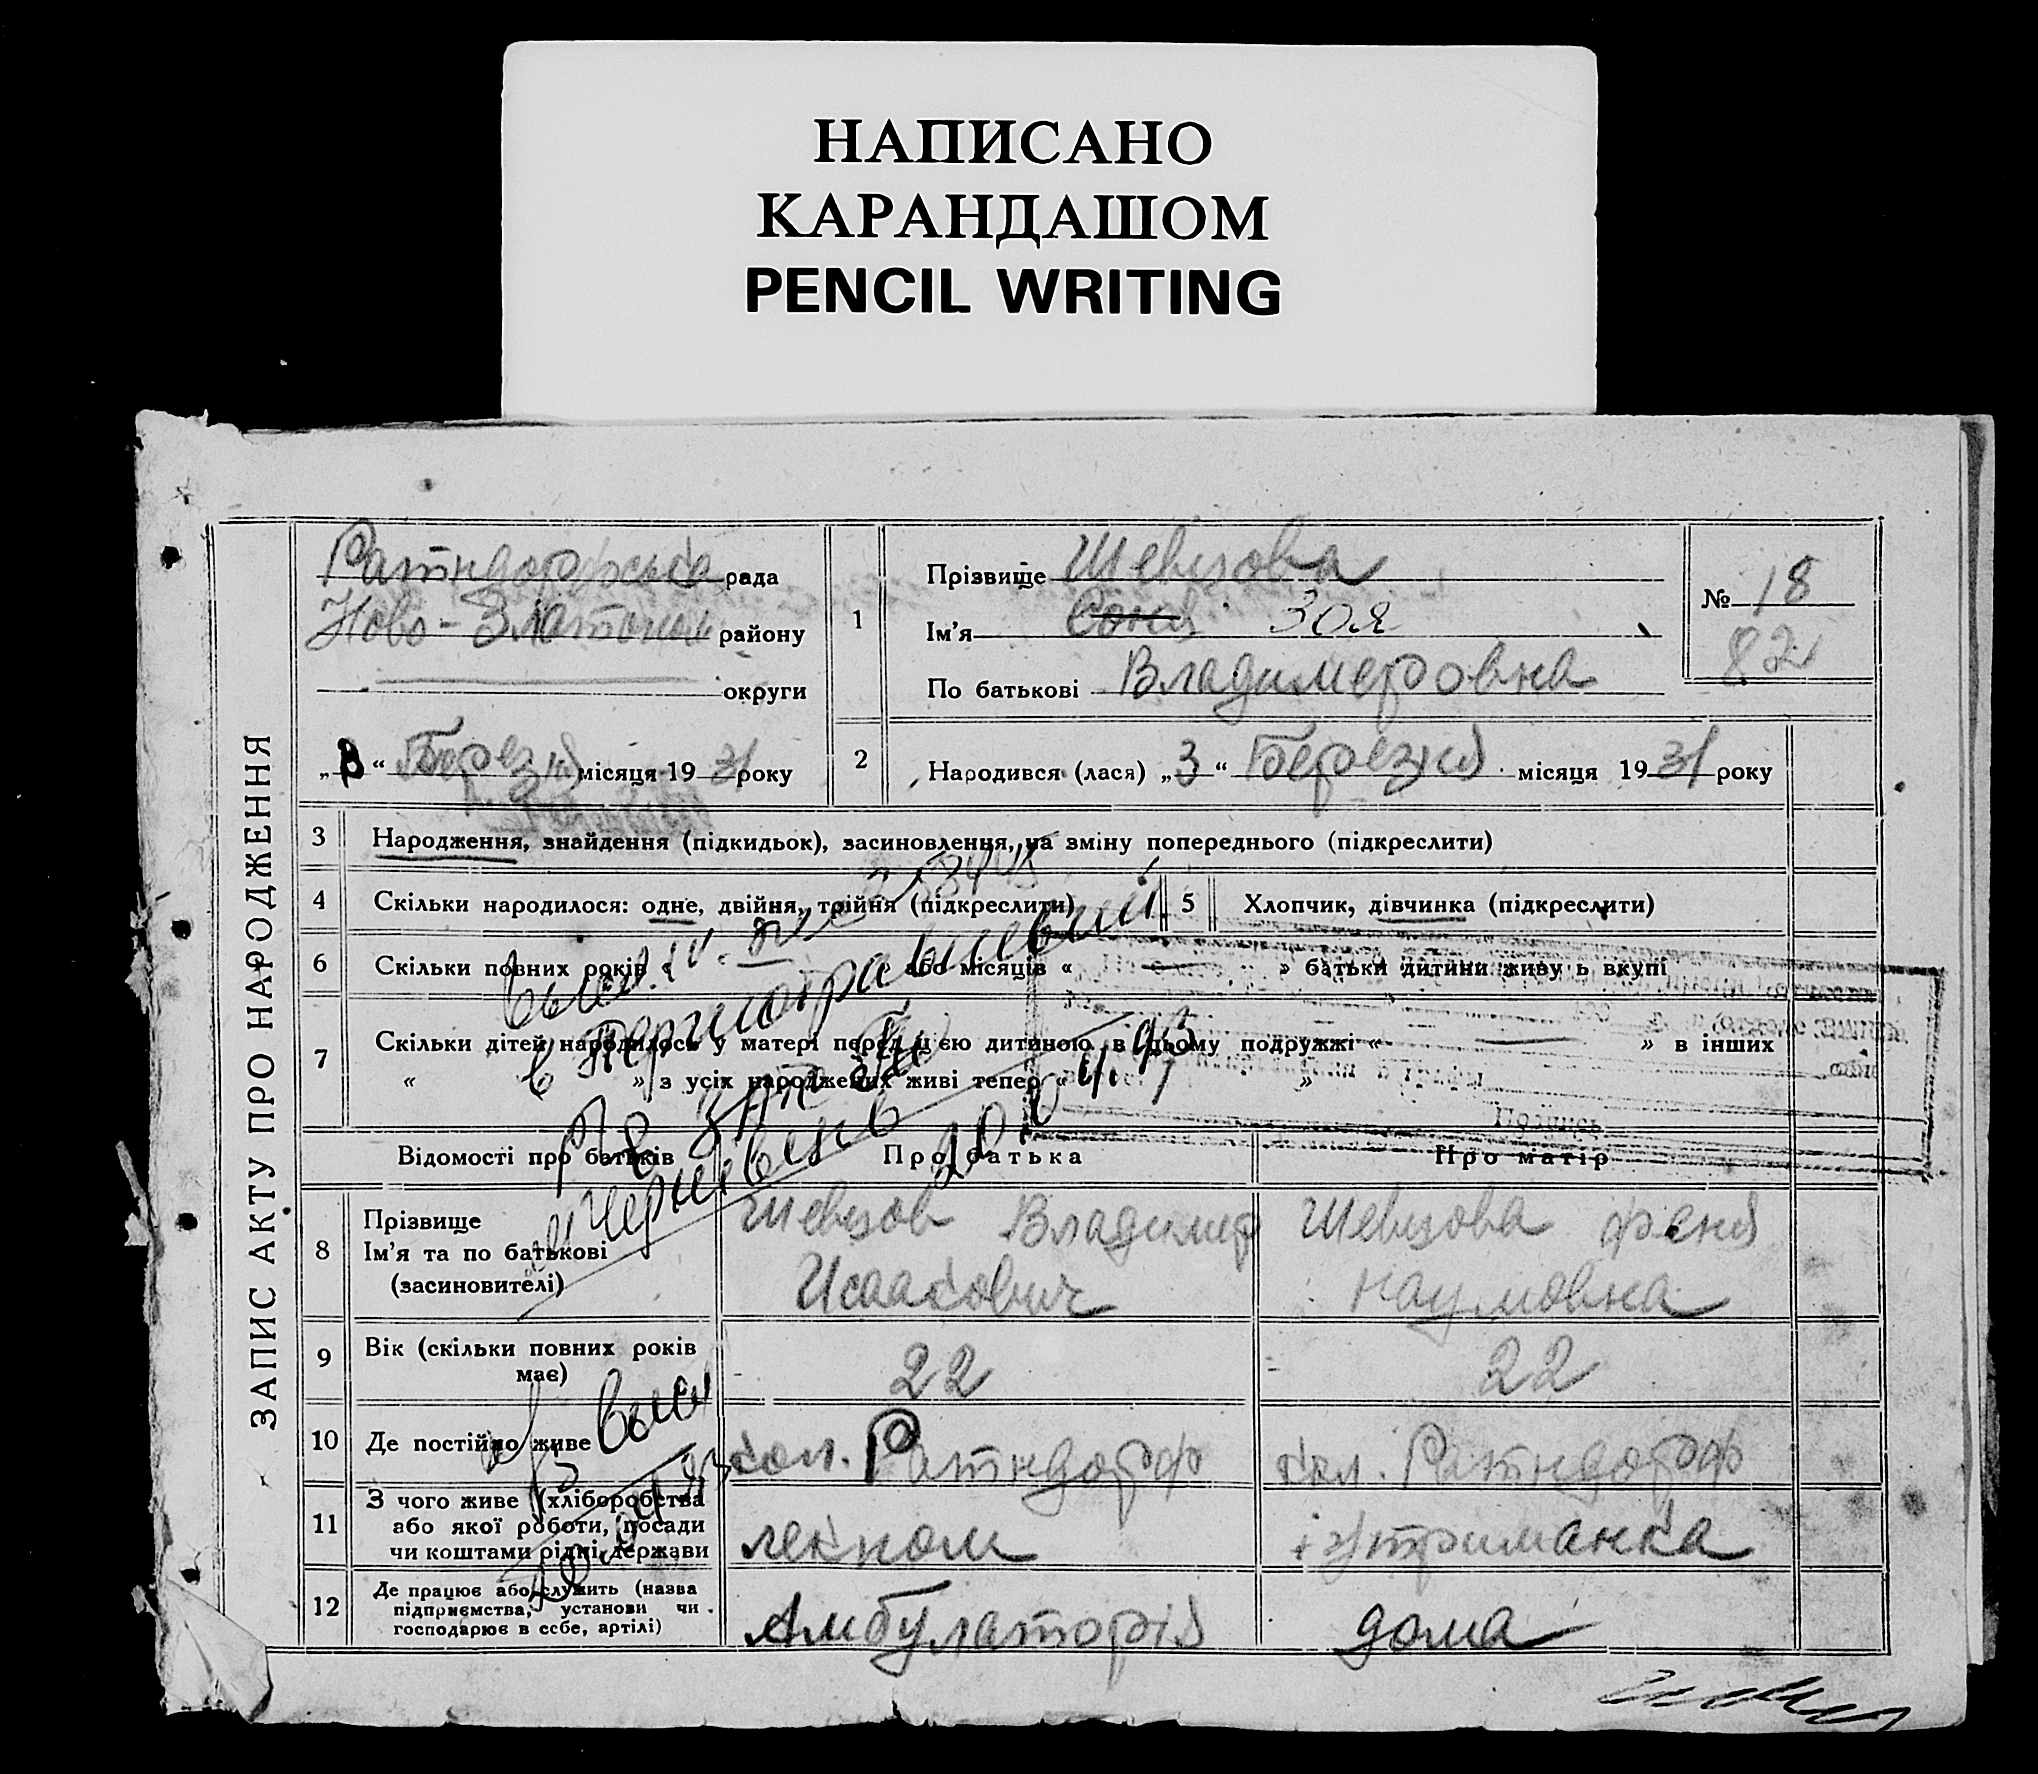 НАПИСАНО
КАРАНДАШОМ
PENCIL WRITING
ЗАПИС АКТУ ПРО НАРОДЖЕННЯ
Ратндорфська рада
Ново-Златопол району
округи
„8“ Березня місяця 1931 року
1
Прізвище Шевцова
Ім'я Соня Зоя
По батькові Владимеровна
№ 18
82
2
Народився (лася) „3“ Березня місяця 1931 року
3 Народження, знайдення (підкидьок), засиновлення, на зміну попереднього (підкреслити)
4 Скільки народилося: одне, двійня, трійня (підкреслити)
5 Хлопчик, дівчинка (підкреслити)
6 Скільки повних років « » або місяців « » батьки дитини живуть вкупі
7 Скільки дітей народилось у матері перед цією дитиною в цьому подружжі « » в інших
« » з усіх народжених живі тепер « »
Відомості про батьків Про батька Про матір
8 Прізвище
Ім'я та по батькові
(засиновителі)
Шевцов Владимер
Исаакович
Шевцова Феня
Наумовна
9 Вік (скільки повних років
має)
22 22
10 Де постійно живе
кол. Ратндорф кол. Ратндорф
11 З чого живе (хліборобства
або якої роботи, посади
чи коштами рідні, держави
лекпом утриманка
12 Де працює або служить (назва
підприємства, установи чи
господарює в себе, артілі)
Амбулаторія дома